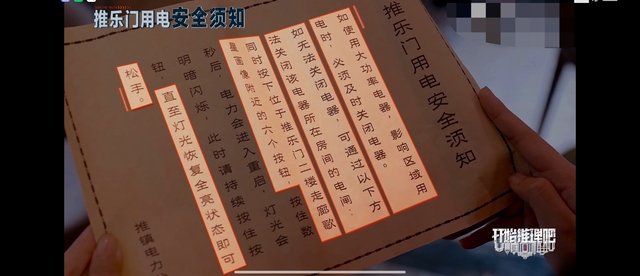 推乐门用电安全须知
推乐门用电安全须知
如使用大功率电器，影响区域用
电时，必须及时关闭电器。
如无法关闭电器，可通过以下方
法关闭该电器所在房间的电闸，
同时按下位于推乐门二楼走廊歌
星画像附近的六个按钮，按住数
秒后，电力会进入重启，灯光会
明暗闪烁，此时请持续按住按
钮，直至灯光恢复全亮状态即可
松手。
推镇电力
开始推理吧